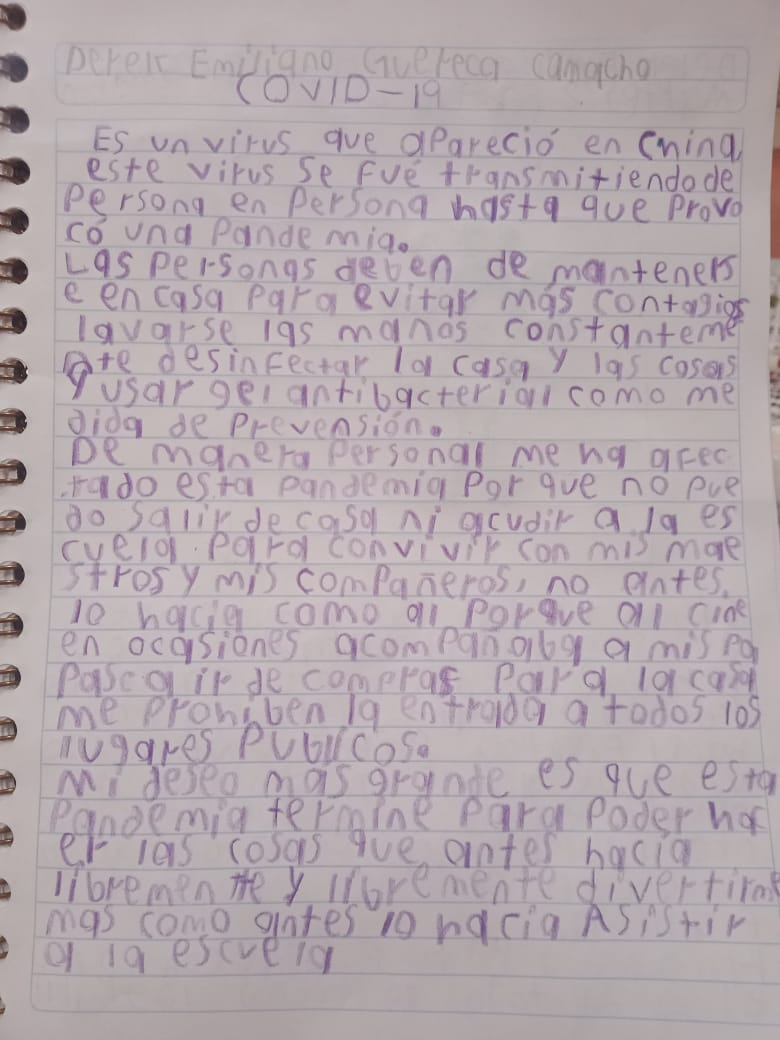 Derek Emiliano Guereca Camacho
COVID-19
Es un virus que apareció en China
este virus se fué transmitiendo de
Persona en Persona hasta que Provo
có una Pandemia.
Las personas deben de manteners
e en casa Para evitar más contagios
lavarse las manos constanteme
nte desinfectar la casa y las cosas
y usar gel antibacterial como me
dida de Prevensión.
De manera Personal me ha afec
tado esta pandemia Por que no pue
do salir de casa ni acudir a la es
cuela Para convivir con mis mae
stros y mis compañeros, no antes
lo hacia como al Porque al cine
en ocasiones acompañaba a mis Pa
Pas a ir de compras Para la casa
me Prohiben la entrada a todos los
lugares Publicos.
Mi deseo mas grande es que esta
Pandemia termine Para Poder hac
er las cosas que antes hacia
libremente y libremente divertirme
mas como antes lo hacia Asistir
a la escuela